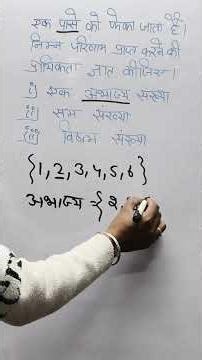 एक पासे को फेंका जाता है।
निम्न परिणाम प्राप्त करने की
प्रायिकता ज्ञात कीजिए।
i) एक अभाज्य संख्या
ii) सम संख्या
iii) विषम संख्या
{1, 2, 3, 4, 5, 6}
अभाज्य = {2,